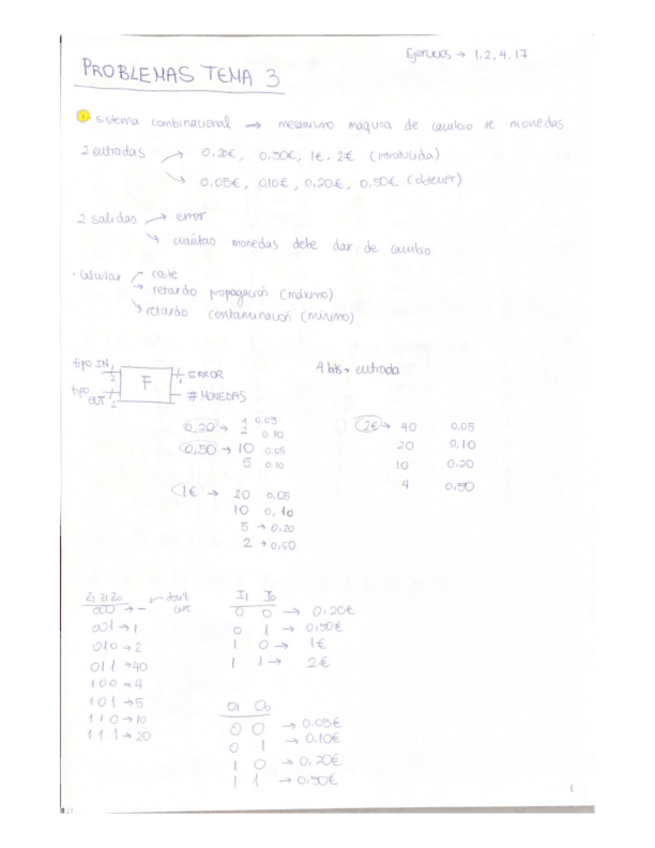 Ejercicios → 1, 2, 4, 17
PROBLEMAS TEMA 3
sistema combinacional → mecanismo máquina de cambio de monedas
2 entradas → 0,20€, 0,50€, 1€, 2€ (introducida)
→ 0,05€, 0,10€, 0,20€, 0,50€ (obtener)
2 salidas → error
→ cuántas monedas debe dar de cambio.
· Calcular → coste
→ retardo propagación (máximo)
→ retardo contaminación (mínimo)
tipo IN 2 F 1 ERROR
tipo OUT 2 # MONEDAS
4 bits → entrada
0,20 → 4 0.05
2 0.10
0,50 → 10 0.05
5 0.10
1€ → 20 0.05
10 0,10
5 → 0,20
2 → 0,50
2€ → 40 0,05
20 0,10
10 0.20
4 0,50
Z2 Z1 Z0
000 → - don't care
001 → 1
010 → 2
011 → 40
100 → 4
101 → 5
110 → 10
111 → 20
I1 I0
0 0 → 0,20€
0 1 → 0,50€
1 0 → 1€
1 1 → 2€
O1 O0
0 0 → 0.05€
0 1 → 0.10€
1 0 → 0,20€
1 1 → 0,50€
1